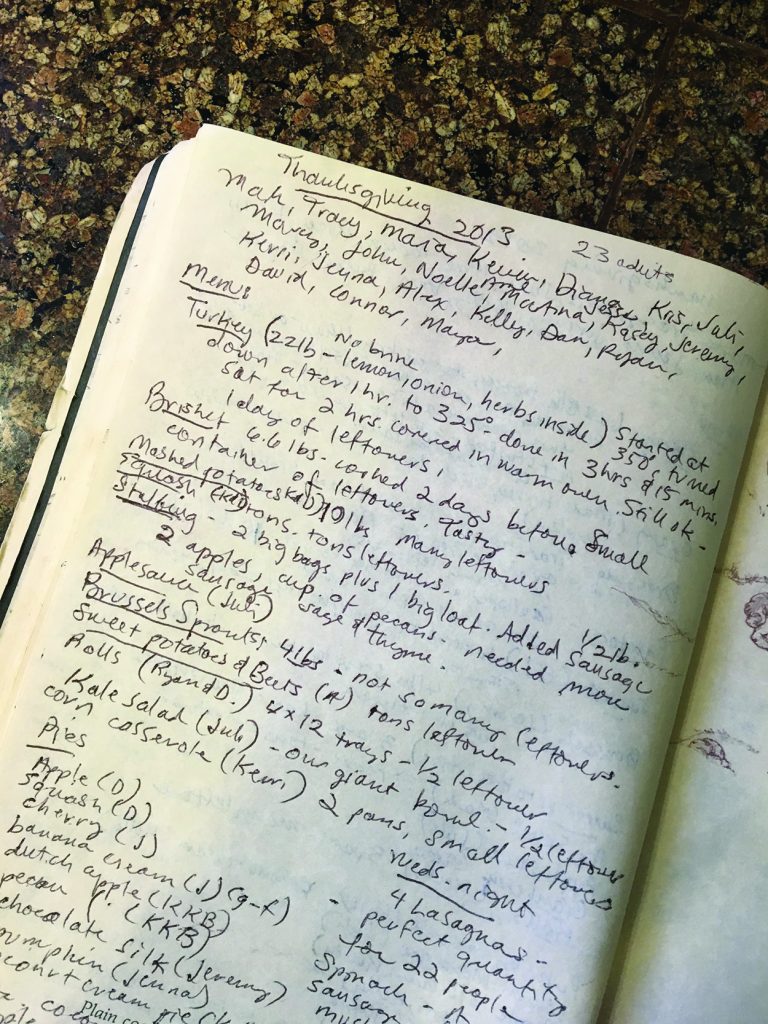 Thanksgiving 2013 23 adults
Mah, Tracy, Mara, Kevin, Diane, Kris, Juli,
Marcy, John, Noelle, Anna, Jesse,
Martina, Kasey, Jeremy,
Kerri, Jenna, Alex, Kelly, Dan, Ryan,
David, Connor, Maya,
Menu:
No brine
Turkey (22lb - lemon, onion, herbs inside) Started at
350°, turned
down after 1hr. to 325° - done in 3hrs & 15 mins.
Sat for 2 hrs. covered in warm oven. Still ok -
1 day of leftovers.
Brisket 6.6 lbs. cooked 2 days before. Small
container of leftovers. Tasty -
Mashed potatoes 10 lbs many leftovers
Squash tons. tons leftovers.
Stuffing - 2 big bags plus 1 big loaf. Added 1/2 lb.
sausage
2 apples, cup of pecans. needed more
sausage sage & thyme.
Applesauce (Juli)
Brussels Sprouts; 4lbs - not so many leftovers.
Sweet potatoes & Beets (A) tons leftover
Rolls (Ryan & D.) 4 x 12 trays - 1/2 leftover
Kale salad (Juli) - our giant bowl. - 1/2 leftover
corn casserole (Kerri) 2 pans, small leftovers
Pies
Apple (D)
squash (D)
cherry (J)
banana cream (J) (g-f)
dutch apple (KKB)
pecan (KKB)
chocolate silk (Jeremy)
pumpkin (Jenna)
cream pie
Plain
Weds. night
4 Lasagnas -
perfect quantity
for 22 people
Spinach - A
sausage